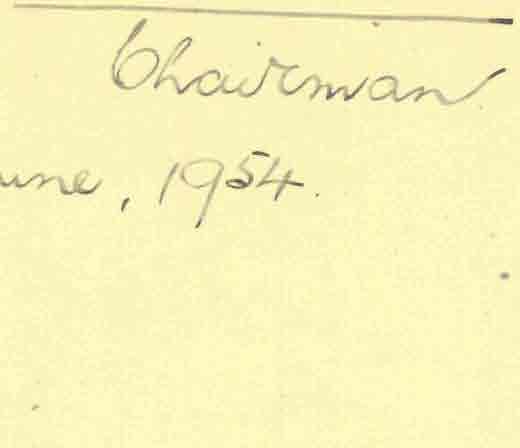 Chairman
une, 1954.